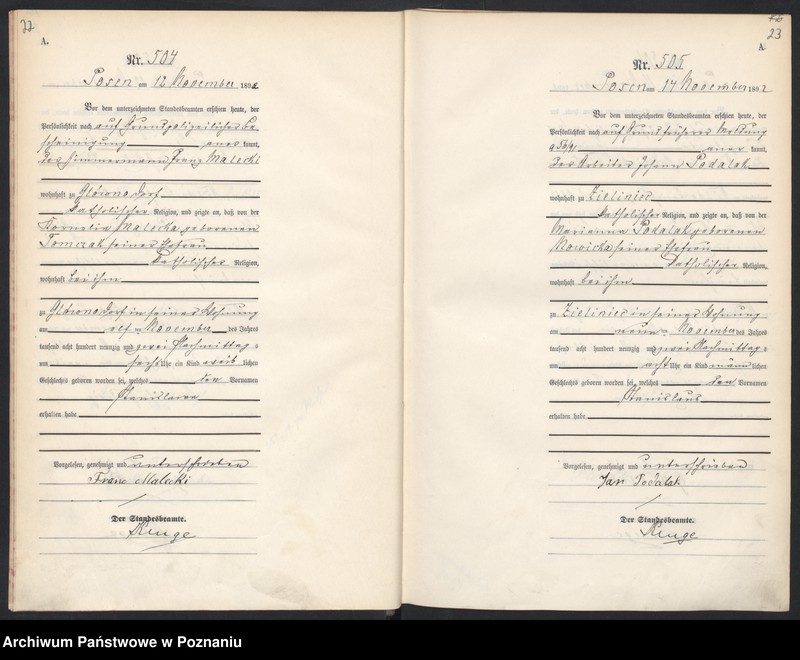 22
A.
Nr. 504
Posen am 12 November 1892
Vor dem unterzeichneten Standesbeamten erschien heute, der
Persönlichkeit nach auf Grund polizeilicher Be
scheinigung anerkannt,
der Zimmermann Franz Malecki
wohnhaft zu Glównodorf
katholischer Religion, und zeigte an, daß von der
Kornelia Malecka geborenen
Tomczak seiner Ehefrau
katholischer Religion,
wohnhaft bei ihm
zu Glównodorf in seiner Wohnung
am elf ten November des Jahres
tausend acht hundert neunzig und zwei Nachmittags
um sechs Uhr ein Kind weiblichen
Geschlechts geboren worden sei, welches den Vornamen
Stanislawa
erhalten habe
Vorgelesen, genehmigt und unterschrieben
Franc Malecki
Der Standesbeamte.
Kruge
23
A
Nr. 505
Posen am 14 November 1892
Vor dem unterzeichneten Standesbeamten erschien heute, der
Persönlichkeit nach auf Grund früherer Meldung
956/91 anerkannt,
der Arbeiter Johann Podalak
wohnhaft zu Zieliniec
katholischer Religion, und zeigte an, daß von der
Marianna Podalak geborenen
Nowicka seiner Ehefrau
katholischer Religion,
wohnhaft bei ihm
zu Zieliniec in seiner Wohnung
am neun ten November des Jahres
tausend acht hundert neunzig und zwei Nachmittags
um acht Uhr ein Kind männlichen
Geschlechts geboren worden sei, welches den Vornamen
Stanislaus
erhalten habe
Vorgelesen, genehmigt und unterschrieben
Jan Podalak
Der Standesbeamte.
Kruge
Archiwum Państwowe w Poznaniu